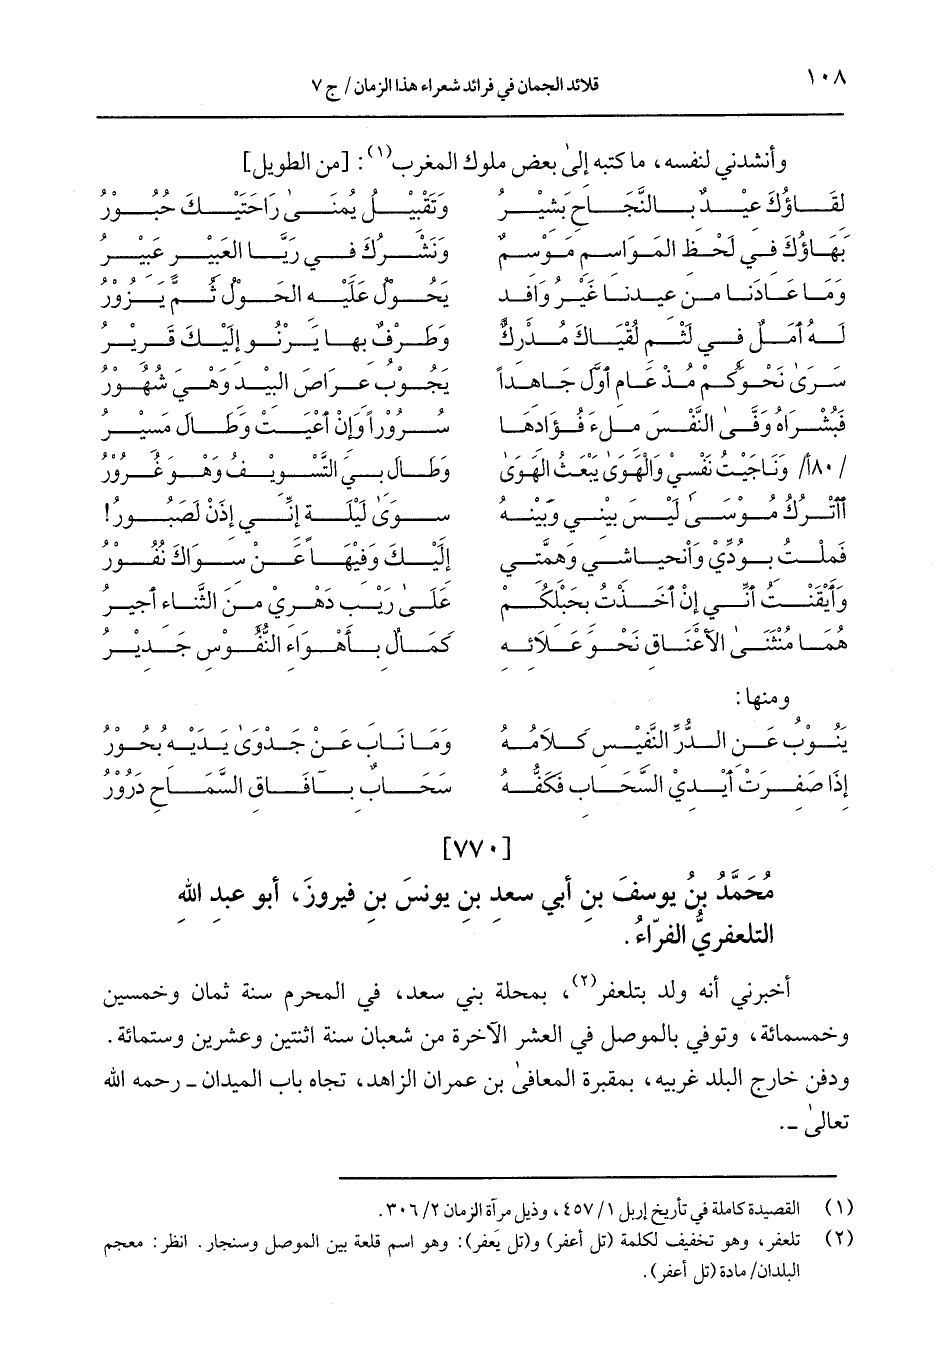 ١٠٨ قلائد الجمان في فرائد شعراء هذا الزمان/ ج ٧
وأنشدني لنفسه، ما كتبه إلىٰ بعض ملوك المغرب(١): [من الطويل]
لقَاؤُكَ عِيدٌ بالنَّجَاحِ بَشيْرُ وَتَقْبِيْلُ يمْنَىٰ رَاحَتَيْكَ حُبُورُ
بَهَاؤُكَ في لَحْظِ المَوَاسِمِ مَوْسِمٌ وَنَشْرُكَ في رَيَّا العَبِيْرِ عَبِيْرُ
وَمَا عَادَنَا من عِيدنَا غَيْرُ وَافِد يَحُولُ عَلَيْهِ الحَوْلُ ثُمَّ يَزُورُ
لَهُ أَمَلٌ في لَثْمِ لُقْيَاكَ مُدْرَكٌ وَطَرْفٌ بهَا يَرْنُو إِلَيْكَ قَرِيْرُ
سَرَىٰ نَحْوَكُمْ مُذْ عَامِ أَوَّلَ جَاهِداً يَجُوبُ عِرَاصَ البِيْدِ وَهْيَ شُهُورُ
فَبُشْرَاهُ وَفَّىٰ النَّفْسَ مِلءَ فُؤَادِهَا سُرُوْراً وَإنْ أَعْيَتْ وَطَالَ مَسِيْرُ
/١٨٠أ/ وَنَاجَيتُ نَفْسِي وَالْهَوَىٰ يَبْعَثُ الْهَوَىٰ وَطَالَ بيَ التَّسْوِيْفُ وَهْوَ غَرُورُ
أَأَتْرُكُ مُوْسَىٰ لَيْسَ بَيْني وَبَيْنَهُ سوَىٰ لَيْلَةٍ إِنِّي إذَنْ لَصَبُورُ!
فَملْتُ بوُدِّي وَانْحِيَاشي وَهمَّتي إِلَيْكَ وَفيْهَا عَنْ سِوَاكَ نُفُورُ
وَأَيْقَنْتُ أَنِّي إنْ أَخَذْتُ بحَبْلكُمْ عَلَىٰ رَيْبِ دَهْرِي مِنَ الثَّنَاءِ أُجِيرُ
هُمَا مُنْثَنَىٰ الأَعْنَاقِ نَحْوَ عَلاَئِهِ كَمَالٌ بأَهْوَاءِ النُّفُوْسِ جَدِيْرُ
ومنها:
يَنُوْبُ عَنِ الدُّرِّ النَّفِيْسِ كَلاَمُهُ وَمَا نَابَ عَنْ جَدْوَىٰ يَدَيْهِ بُحُورُ
إذَا صَفِرَتْ أَيْدِي السَّحَابِ فَكَفُّهُ سَحَابٌ بآفَاقِ السَّمَاحِ دَرُورُ
[٧٧٠]
مُحَمَّدُ بنُ يوسفَ بنِ أبي سعدِ بنِ يونسَ بنِ فيروزَ، أبو عبدِ اللهِ
التلعفريُّ الفرّاءُ.
أخبرني أنه ولد بتلعفر(٢)، بمحلة بني سعد، في المحرم سنة ثمان وخمسين
وخمسمائة، وتوفي بالموصل في العشر الآخرة من شعبان سنة اثنتين وعشرين وستمائة.
ودفن خارج البلد غربيه، بمقبرة المعافىٰ بن عمران الزاهد، تجاه باب الميدان ـ رحمه الله
تعالىٰ ـ.
(١) القصيدة كاملة في تأريخ إربل ١/ ٤٥٧، وذيل مرآة الزمان ٢/ ٣٠٦.
(٢) تلعفر، وهو تخفيف لكلمة (تل أعفر) و(تل يَعفر): وهو اسم قلعة بين الموصل وسنجار. انظر: معجم
البلدان/ مادة (تل أعفر).